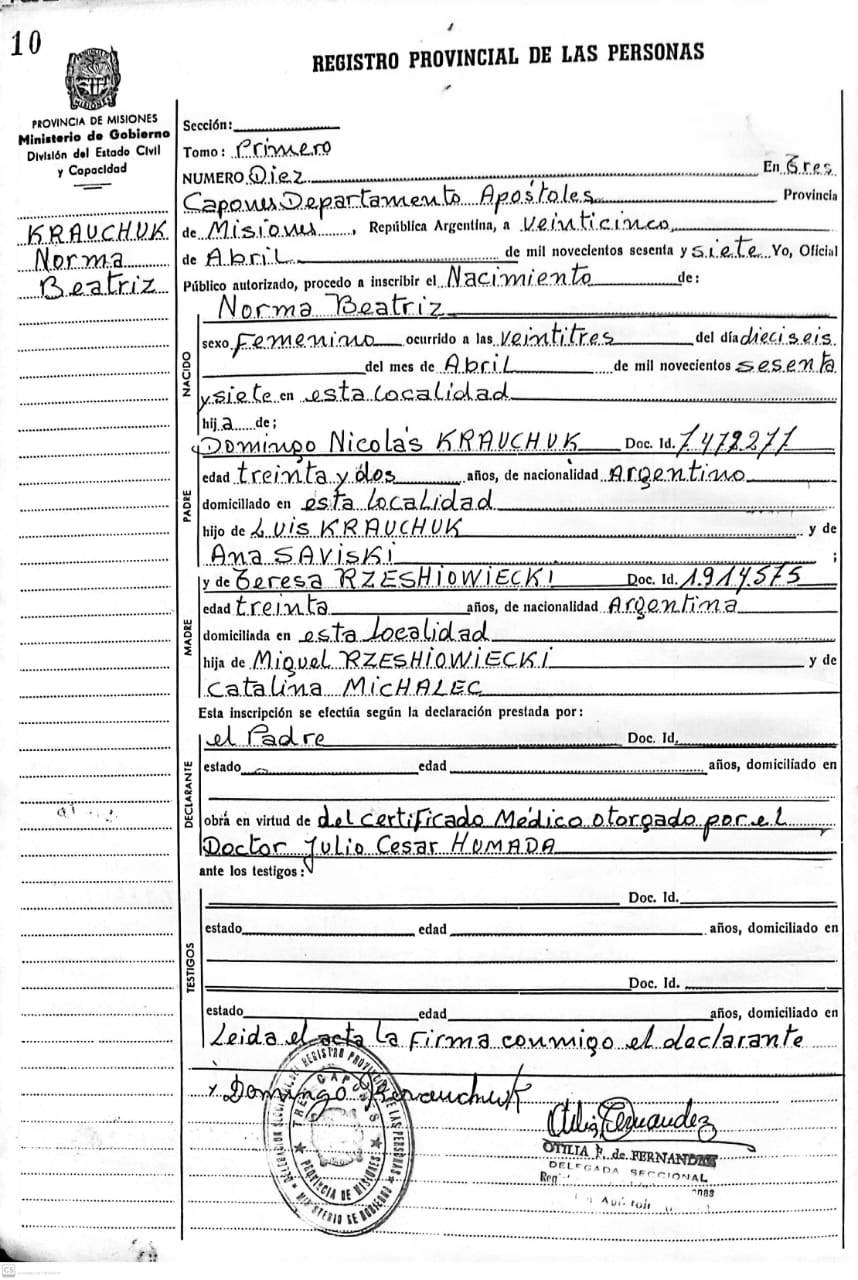 10
REGISTRO PROVINCIAL DE LAS PERSONAS
PROVINCIA DE MISIONES
Ministerio de Gobierno
División del Estado Civil
y Capacidad
KRAUCHUK
Norma
Beatriz
Sección:
Tomo: Primero
NUMERO Diez En Tres
Capones Departamento Apóstoles Provincia
de Misiones, República Argentina, a veinticinco
de Abril de mil novecientos sesenta y siete Yo, Oficial
Público autorizado, procedo a inscribir el Nacimiento de:
NACIDO
Norma Beatriz
sexo Femenino ocurrido a las veintitres del día dieciseis
del mes de Abril de mil novecientos sesenta
y siete en esta localidad
hija de;
PADRE
Domingo Nicolás KRAUCHUK Doc. Id. 7472277
edad treinta y dos años, de nacionalidad Argentino
domiciliado en esta localidad
hijo de Luis KRAUCHUK y de
Ana SAVISKI ;
MADRE
y de Teresa RZESHIOWIECKI Doc. Id. 1914575
edad treinta años, de nacionalidad Argentina
domiciliada en esta localidad
hija de Miguel RZESHIOWIECKI y de
Catalina MICHALEC
Esta inscripción se efectúa según la declaración prestada por:
DECLARANTE
el Padre Doc. Id.
estado edad años, domiciliado en
obrá en virtud de del certificado Médico otorgado por el
Doctor Julio Cesar HUMADA
ante los testigos:
TESTIGOS
Doc. Id.
estado edad años, domiciliado en
Doc. Id.
estado edad años, domiciliado en
Leida el acta la firma conmigo el declarante
Domingo Krauchuk
REGISTRO PROVINCIAL DE LAS PERSONAS
TRES CAPONES
PROVINCIA DE MISIONES
MINISTERIO DE GOBIERNO
Otilia Fernandez
OTILIA F. de FERNANDEZ
DELEGADA SECCIONAL
CS